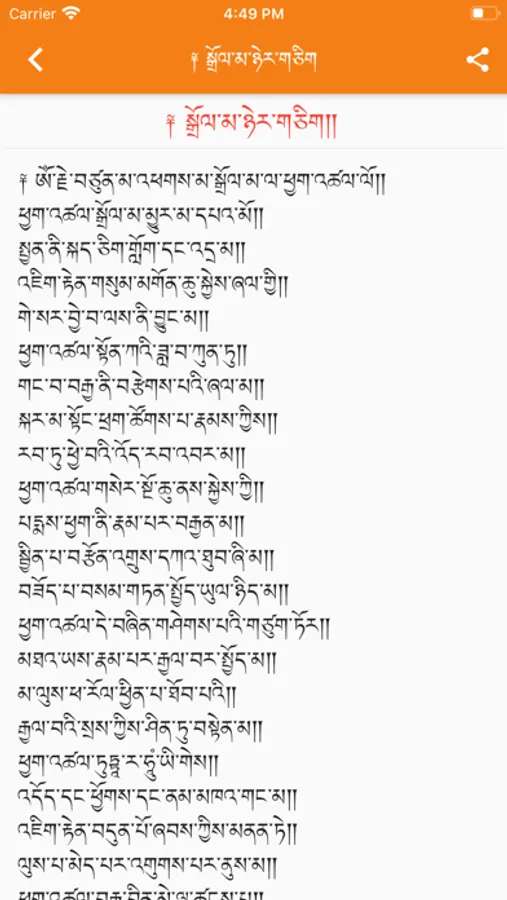 Carrier 4:49 PM
༈ སྒྲོལ་མ་ཉེར་གཅིག
༈ སྒྲོལ་མ་ཉེར་གཅིག།།
༈ ཨོཾ་རྗེ་བཙུན་མ་འཕགས་མ་སྒྲོལ་མ་ལ་ཕྱག་འཚལ་ལོ།།
ཕྱག་འཚལ་སྒྲོལ་མ་མྱུར་མ་དཔའ་མོ།།
སྤྱན་ནི་སྐད་ཅིག་གློག་དང་འདྲ་མ།།
འཇིག་རྟེན་གསུམ་མགོན་ཆུ་སྐྱེས་ཞལ་གྱི།།
གེ་སར་བྱེ་བ་ལས་ནི་བྱུང་མ།།
ཕྱག་འཚལ་སྟོན་ཀའི་ཟླ་བ་ཀུན་ཏུ།།
གང་བ་བརྒྱ་ནི་བརྩེགས་པའི་ཞལ་མ།།
སྐར་མ་སྟོང་ཕྲག་ཚོགས་པ་རྣམས་ཀྱིས།།
རབ་ཏུ་ཕྱེ་བའི་འོད་རབ་འབར་མ།།
ཕྱག་འཚལ་གསེར་སྔོ་ཆུ་ནས་སྐྱེས་ཀྱི།།
པདྨས་ཕྱག་ནི་རྣམ་པར་བརྒྱན་མ།།
སྦྱིན་པ་བརྩོན་འགྲུས་དཀའ་ཐུབ་ཞི་མ།།
བཟོད་པ་བསམ་གཏན་སྤྱོད་ཡུལ་ཉིད་མ།།
ཕྱག་འཚལ་དེ་བཞིན་གཤེགས་པའི་གཙུག་ཏོར།།
མཐའ་ཡས་རྣམ་པར་རྒྱལ་བར་སྤྱོད་མ།།
མ་ལུས་ཕ་རོལ་ཕྱིན་པ་ཐོབ་པའི།།
རྒྱལ་བའི་སྲས་ཀྱིས་ཤིན་ཏུ་བསྟེན་མ།།
ཕྱག་འཚལ་ཏུཏྟཱ་ར་ཧཱུྃ་ཡི་གེས།།
འདོད་དང་ཕྱོགས་དང་ནམ་མཁའ་གང་མ།།
འཇིག་རྟེན་བདུན་པོ་ཞབས་ཀྱིས་མནན་ཏེ།།
ལུས་པ་མེད་པར་འགུགས་པར་ནུས་མ།།